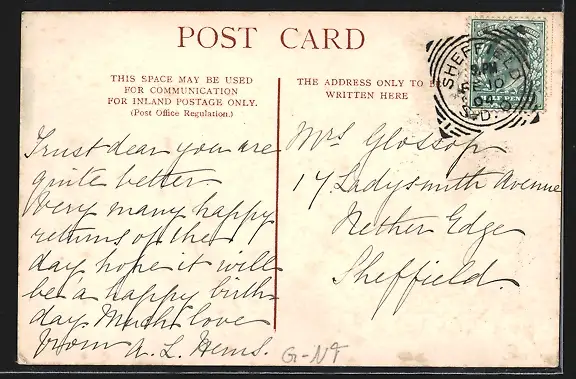 POST CARD
THIS SPACE MAY BE USED
FOR COMMUNICATION
FOR INLAND POSTAGE ONLY.
(Post Office Regulation.)
Trust dear you are
quite better.
Very many happy
returns of the
day hope it will
be a happy birth
day Much love
from A. L. Hems.
THE ADDRESS ONLY TO BE
WRITTEN HERE
Mrs Glossop
17 Ladysmith Avenue
Nether Edge
Sheffield.
SHEFFIELD
10
S.D.
HALF PENNY
G-NF